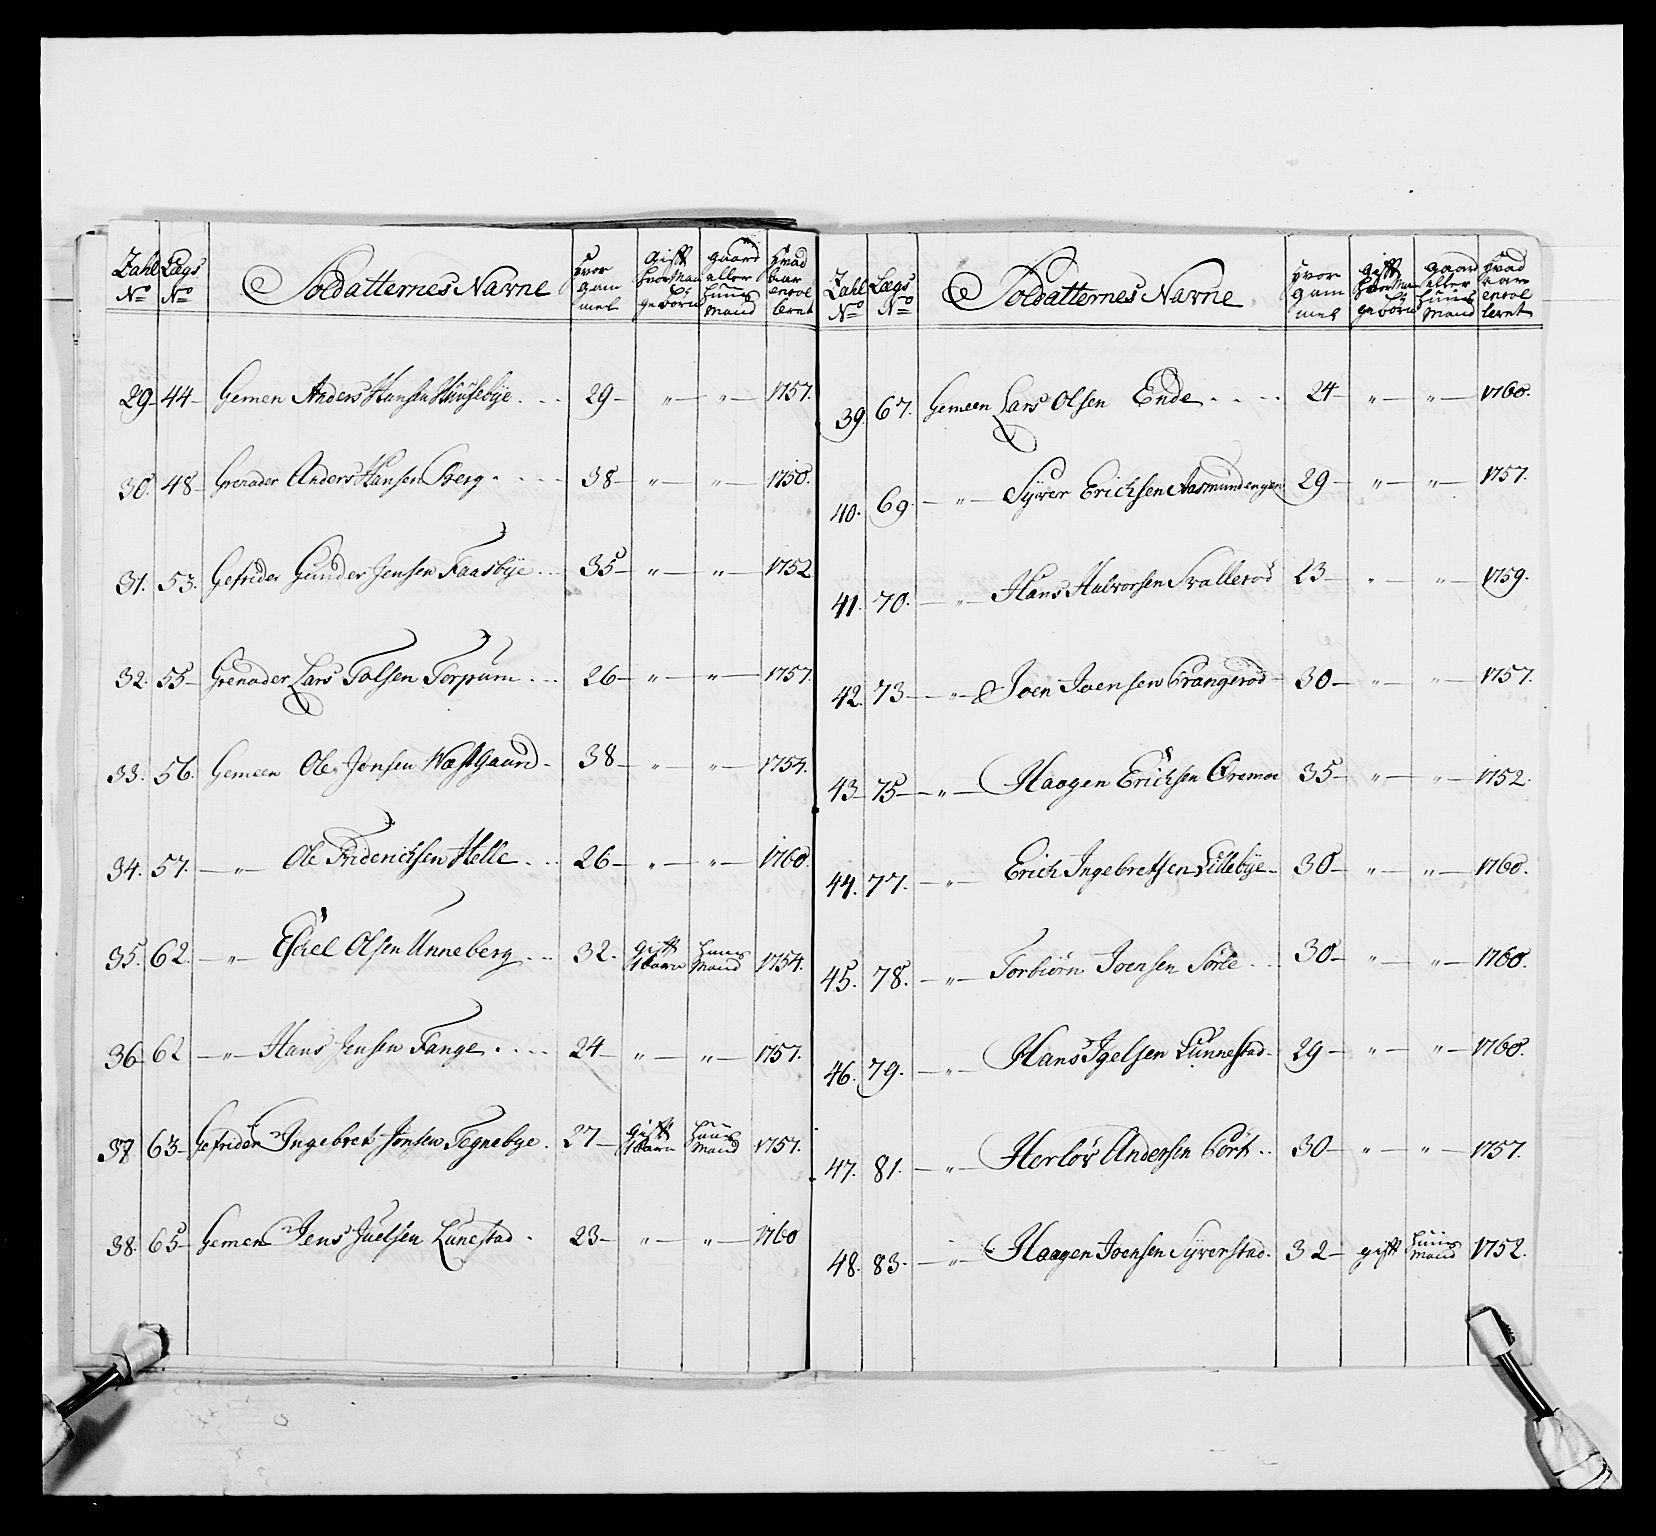 Zahl No | Lægs No | Soldatternes Navne | Hvor gammel | Gift hvor Ma geborn | gaard eller Huus Mand | Hvad Aar enrolleret
29 | 44 | Gemen Anders Hansen Huusebÿe | 29 | " | " | 1757.
30. | 48 | Grenader Anders Hansen Berg | 38 | " | " | 1750.
31. | 53. | Gefrider Gunder Jensen Faasbÿe | 35 | " | " | 1752
32. | 55 | Grenader Lars Tolsen Torpum | 26 | " | " | 1757.
33. | 56. | Gemeen Ole Jonsen Westgaard | 38 | " | " | 1754.
34. | 57. | " Ole Friderichsen Helle | 26 | " | " | 1760.
35. | 62. | " Eskel Olsen Unneberg | 32. | gift 1 Barn | Huus Mand | 1754.
36 | 62 | " Hans Jensen Fange | 24 | " | " | 1757.
37 | 63 | Gefrider Ingebret Jonsen Tegnebye | 27 | gift 1 Barn | Huus Mand | 1757.
38. | 65 | Gemen Jens Juelsen Lunestad | 23 | " | " | 1760
Zahl No | Lægs No | Soldatternes Navne | Hvor gammel | gift hvor Ma geborn | gaard eller Huus Mand | Hvad Aar enrolleret
39. | 67. | Gemeen Lars Olsen Ende | 24 | " | " | 1760.
40. | 69. | " Syver Erichsen Aasmundengen | 29 | " | " | 1757.
41. | 70. | " Hans Halvorsen Svallerød | 23 | " | " | 1759.
42. | 73 | " Joen Joensen Prangerød | 30 | " | " | 1757.
43 | 75 | " Haagen Erichsen Øremoe | 35 | " | " | 1752.
44. | 77. | " Erich Ingebretsen Lillebÿe | 30 | " | " | 1760.
45. | 78. | " Torbiørn Joensen Sørlie | 30 | " | " | 1760.
46. | 79. | " Hans Igelsen Lunnestad | 29 | " | " | 1760.
47. | 81. | " Herlov Andersen Port | 30 | " | " | 1757.
48. | 83. | " Haagen Joensen Syverstad | 32 | gift | Huus Mand | 1752.